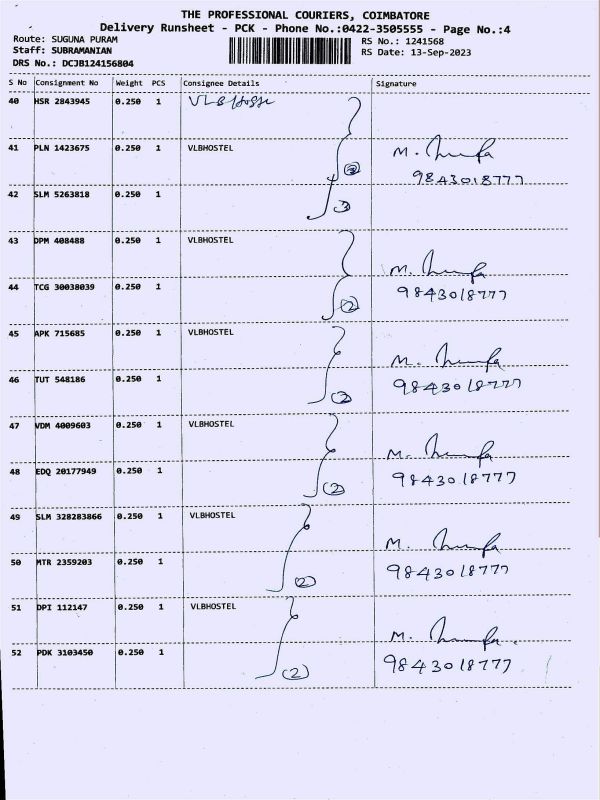 THE PROFESSIONAL COURIERS, COIMBATORE
Delivery Runsheet - PCK - Phone No.:0422-3505555 - Page No.:4
Route: SUGUNA PURAM RS No.: 1241568
Staff: SUBRAMANIAN RS Date: 13-Sep-2023
DRS No.: DCJB124156804
S No Consignment No Weight PCS Consignee Details Signature
40 HSR 2843945 0.250 1 VLB Hostel
41 PLN 1423675 0.250 1 VLBHOSTEL M.
9843018777
42 SLM 5263818 0.250 1 3
43 DPM 408488 0.250 1 VLBHOSTEL M.
44 TCG 30038039 0.250 1 2 9843018777
45 APK 715685 0.250 1 VLBHOSTEL M.
46 TUT 548186 0.250 1 2 9843018777
47 VDM 4009603 0.250 1 VLBHOSTEL M.
48 EDQ 20177949 0.250 1 2 9843018777
49 SLM 328283866 0.250 1 VLBHOSTEL M.
50 MTR 2359203 0.250 1 2 9843018777
51 DPI 112147 0.250 1 VLBHOSTEL M.
52 PDK 3103450 0.250 1 (2) 9843018777